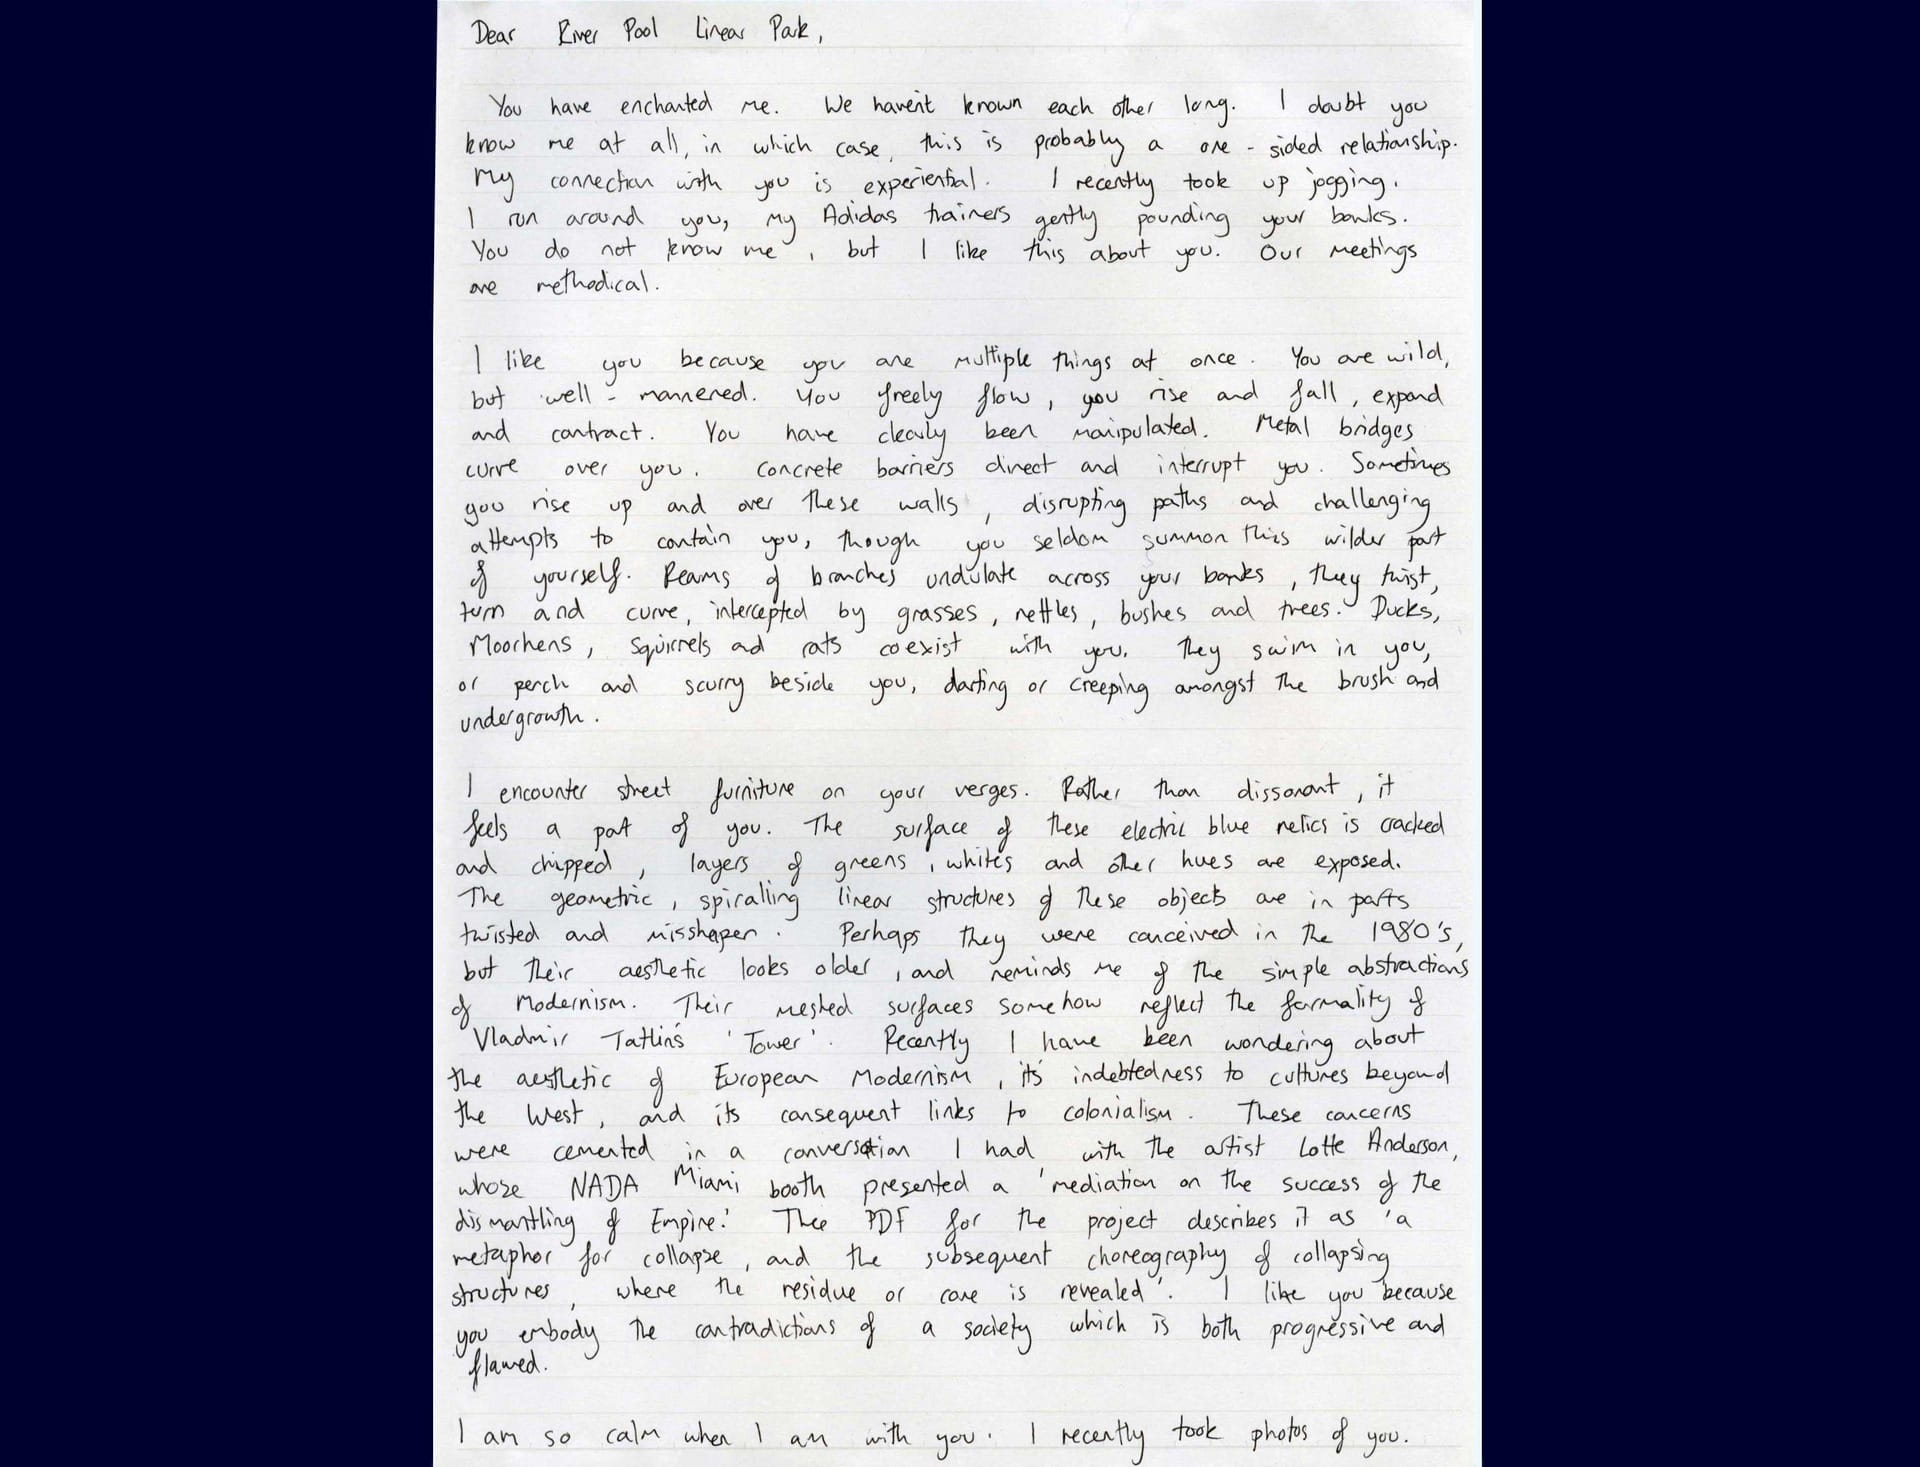 Dear River Pool Linear Park,
You have enchanted me. We haven't known each other long. I doubt you
know me at all, in which case, this is probably a one-sided relationship.
My connection with you is experiential. I recently took up jogging.
I run around you, my Adidas trainers gently pounding your banks.
You do not know me, but I like this about you. Our meetings
are methodical.
I like you because you are multiple things at once. You are wild,
but well-mannered. You freely flow, you rise and fall, expand
and contract. You have clearly been manipulated. Metal bridges
curve over you. Concrete barriers direct and interrupt you. Sometimes
you rise up and over these walls, disrupting paths and challenging
attempts to contain you, though you seldom summon this wilder part
of yourself. Reams of branches undulate across your banks, they twist,
turn and curve, intercepted by grasses, nettles, bushes and trees. Ducks,
Moorhens, squirrels and rats coexist with you. They swim in you,
or perch and scurry beside you, darting or creeping amongst the brush and
undergrowth.
I encounter street furniture on your verges. Rather than dissonant, it
feels a part of you. The surface of these electric blue relics is cracked
and chipped, layers of greens, whites and other hues are exposed.
The geometric, spiralling linear structures of these objects are in parts
twisted and misshapen. Perhaps they were conceived in the 1980's,
but their aesthetic looks older, and reminds me of the simple abstractions
of Modernism. Their meshed surfaces somehow reflect the formality of
Vladmir Tatlin's 'Tower'. Recently I have been wondering about
the aesthetic of European Modernism, it's indebtedness to cultures beyond
the West, and its consequent links to colonialism. These concerns
were cemented in a conversation I had with the artist Lotte Anderson,
whose NADA Miami booth presented a 'mediation on the success of the
dismantling of Empire.' The PDF for the project describes it as 'a
metaphor for collapse, and the subsequent choreography of collapsing
structures, where the residue or core is revealed'. I like you because
you embody the contradictions of a society which is both progressive and
flawed.
I am so calm when I am with you. I recently took photos of you.